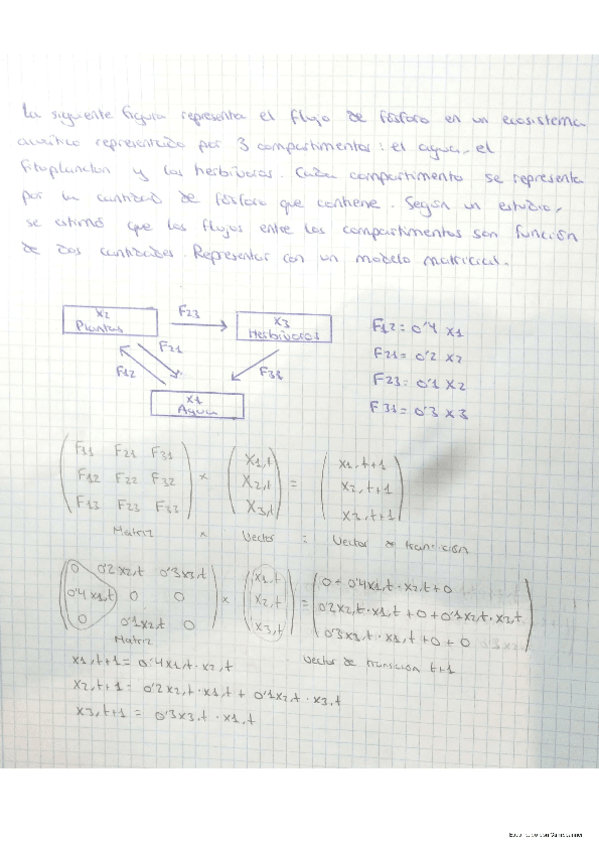 La siguiente figura representa el flujo de fósforo en un ecosistema
acuático representado por 3 compartimentos: el agua, el
fitoplancton y los herbívoros. Cada compartimento se representa
por la cantidad de fósforo que contiene. Según un estudio,
se estimó que los flujos entre los compartimentos son función
de dos cantidades. Representar con un modelo matricial.
X2
Plantas
F23
X3
Herbívoros
F12 = 0'4 X1
F21 = 0'2 X2
F23 = 0'1 X2
F31 = 0'3 X3
F21
F12
X1
Agua
F11 F21 F31
F12 F22 F32
F13 F23 F33
×
X1,t
X2,t
X3,t
=
X1,t+1
X2,t+1
X3,t+1
Matriz × Vector = Vector transición
0 0'2X2,t 0'3X3,t
0'4X1,t 0 0
0 0'1X2,t 0
×
X1,t
X2,t
X3,t
=
0 + 0'4X1,t · X2,t + 0
0'2X2,t · X1,t + 0 + 0'1X2,t · X2,t
0'3X3,t · X1,t + 0 + 0
Matriz
Vector de transición t+1
X1,t+1 = 0'4X1,t · X2,t
X2,t+1 = 0'2X2,t · X1,t + 0'1X2,t · X3,t
X3,t+1 = 0'3X3,t · X1,t